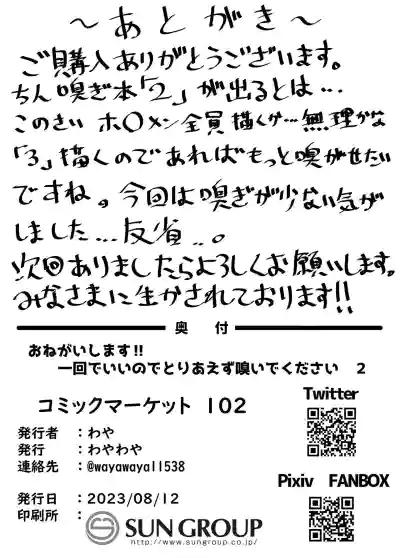 ～あとがき～
ご購入ありがとうございます。
ちん嗅ぎ本「2」が出るとは…
このさい ホ〇メン全員描くか…無理かな
「3」描くのであればもっと嗅がせたい
ですね。今回は嗅ぎが少ない気が
しました…反省…。
次回ありましたらよろしくお願いします。
みなさまに生かされております!!
奥付
おねがいします!!
一回でいいのでとりあえず嗅いでください 2
コミックマーケット 102
発行者 ：わや
発行 ：わやわや
連絡先 ：@wayawaya11538
発行日 ：2023/08/12
印刷所 ：
SUN GROUP
http://www.sungroup.co.jp/
Twitter
Pixiv FANBOX